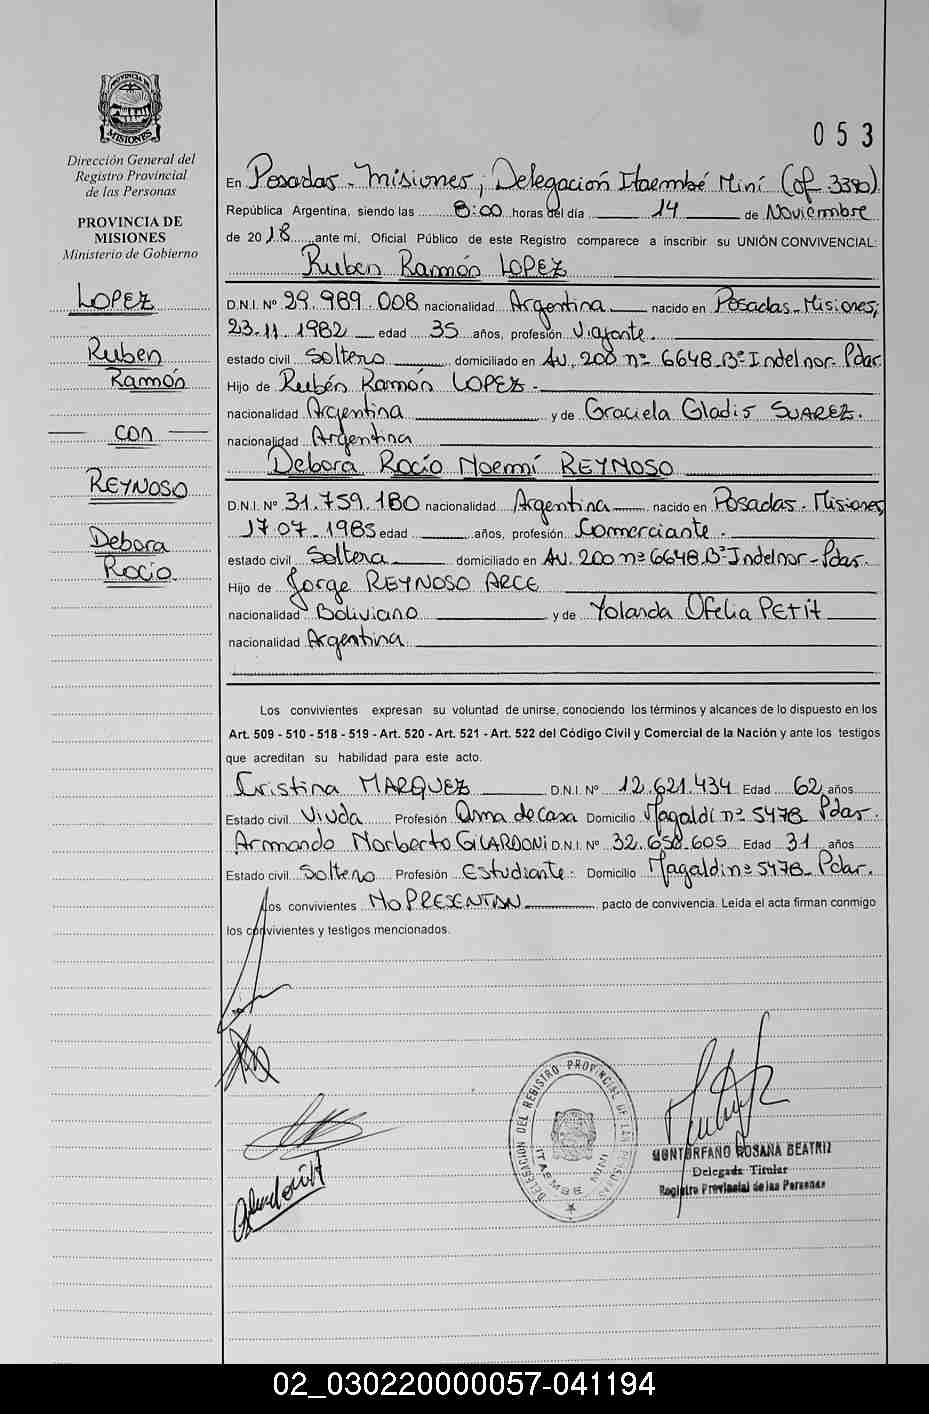 053
PROVINCIA DE
MISIONES
Dirección General del
Registro Provincial
de las Personas
PROVINCIA DE
MISIONES
Ministerio de Gobierno
LOPEZ
Ruben
Ramón
con
REYNOSO
Debora
Rocío
En Posadas - Misiones, Delegación Itaembé Miní (of 3380)
República Argentina, siendo las 8:00 horas del día 14 de Noviembre
de 2018 ante mí, Oficial Público de este Registro comparece a inscribir su UNIÓN CONVIVENCIAL:
Ruben Ramón LOPEZ
D.N.I. Nº 29.989.008 nacionalidad Argentina nacido en Posadas - Misiones,
23.11.1982 edad 35 años, profesión Viajante.
estado civil Soltero domiciliado en Av. 200 nº 6648 Bº Indelnor - Pdas
Hijo de Rubén Ramón LOPEZ -
nacionalidad Argentina y de Graciela Gladis SUAREZ.
nacionalidad Argentina
Debora Rocío Noemí REYNOSO
D.N.I. Nº 31.759.180 nacionalidad Argentina nacido en Posadas - Misiones,
17.07.1985 edad años, profesión Comerciante.
estado civil Soltera domiciliado en Av. 200 nº 6648 Bº Indelnor - Pdas.
Hijo de Jorge REYNOSO ARCE
nacionalidad Boliviano y de Yolanda Ofelia PETIT
nacionalidad Argentina
Los convivientes expresan su voluntad de unirse, conociendo los términos y alcances de lo dispuesto en los
Art. 509 - 510 - 518 - 519 - Art. 520 - Art. 521 - Art. 522 del Código Civil y Comercial de la Nación y ante los testigos
que acreditan su habilidad para este acto.
Cristina MARQUEZ D.N.I. Nº 12.621.434 Edad 62 años
Estado civil Viuda Profesión Ama de casa Domicilio Magaldi nº 5478 Pdas.
Armando Norberto GILARDONI D.N.I. Nº 32.658.605 Edad 31 años
Estado civil Soltero Profesión Estudiante. Domicilio Magaldi nº 5478 - Pdas.
Los convivientes NO PRESENTAN pacto de convivencia. Leída el acta firman conmigo
los convivientes y testigos mencionados.
DELEGACION DEL REGISTRO PROVINCIAL DE LAS PERSONAS
ITAEMBE MINI
MONTORFANO ROSANA BEATRIZ
Delegada Titular
Registro Provincial de las Personas
02_030220000057-041194